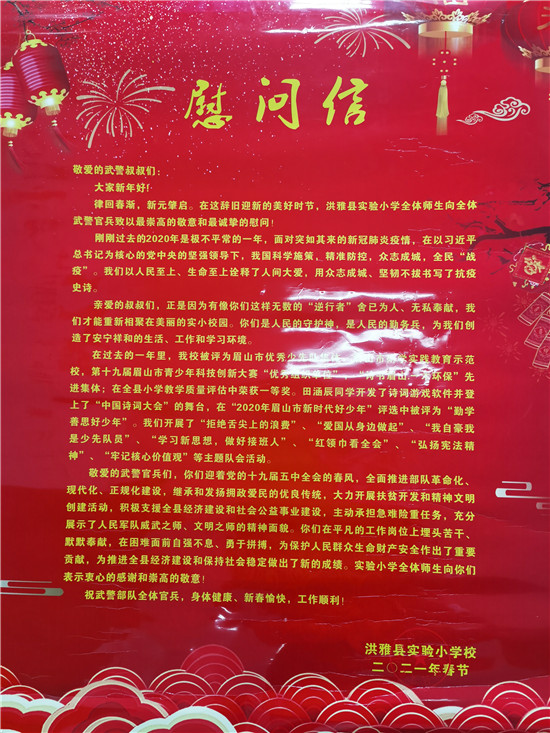 慰问信
敬爱的武警叔叔们：
大家新年好！
律回春渐，新元肇启。在这辞旧迎新的美好时节，洪雅县实验小学全体师生向全体
武警官兵致以最崇高的敬意和最诚挚的慰问！
刚刚过去的2020年是极不平常的一年，面对突如其来的新冠肺炎疫情，在以习近平
总书记为核心的党中央的坚强领导下，我国科学施策，精准防控，众志成城，全民“战
疫”。我们以人民至上、生命至上诠释了人间大爱，用众志成城、坚韧不拔书写了抗疫
史诗。
亲爱的叔叔们，正是因为有像你们这样无数的“逆行者”舍已为人、无私奉献，我
们才能重新相聚在美丽的实小校园。你们是人民的守护神，是人民的勤务兵，为我们创
造了安宁祥和的生活、工作和学习环境。
在过去的一年里，我校被评为眉山市优秀少先队集体、眉山市 实践教育示范
校，第十九届眉山市青少年科技创新大赛“优秀组织单位”，“诗书眉山 环保”先
进集体；在全县小学教学质量评估中荣获一等奖。田涵辰同学开发了诗词游戏软件并登
上了“中国诗词大会”的舞台，在“2020年眉山市新时代好少年”评选中被评为“勤学
善思好少年”。我们开展了“拒绝舌尖上的浪费”、“爱国从身边做起”、“我自豪我
是少先队员”、“学习新思想，做好接班人”、“红领巾看全会”、“弘扬宪法精
神”、“牢记核心价值观”等主题队会活动。
敬爱的武警官兵们，你们迎着党的十九届五中全会的春风，全面推进部队革命化、
现代化、正规化建设，继承和发扬拥政爱民的优良传统，大力开展扶贫开发和精神文明
创建活动，积极支援全县经济建设和社会公益事业建设，主动承担急难险重任务，充分
展示了人民军队威武之师、文明之师的精神面貌。你们在平凡的工作岗位上埋头苦干、
默默奉献，在困难面前自强不息、勇于拼搏，为保护人民群众生命财产安全作出了重要
贡献，为推进全县经济建设和保持社会稳定做出了新的成绩。实验小学全体师生向你们
表示衷心的感谢和崇高的敬意！
祝武警部队全体官兵，身体健康、新春愉快，工作顺利！
洪雅县实验小学校
二〇二一年春节